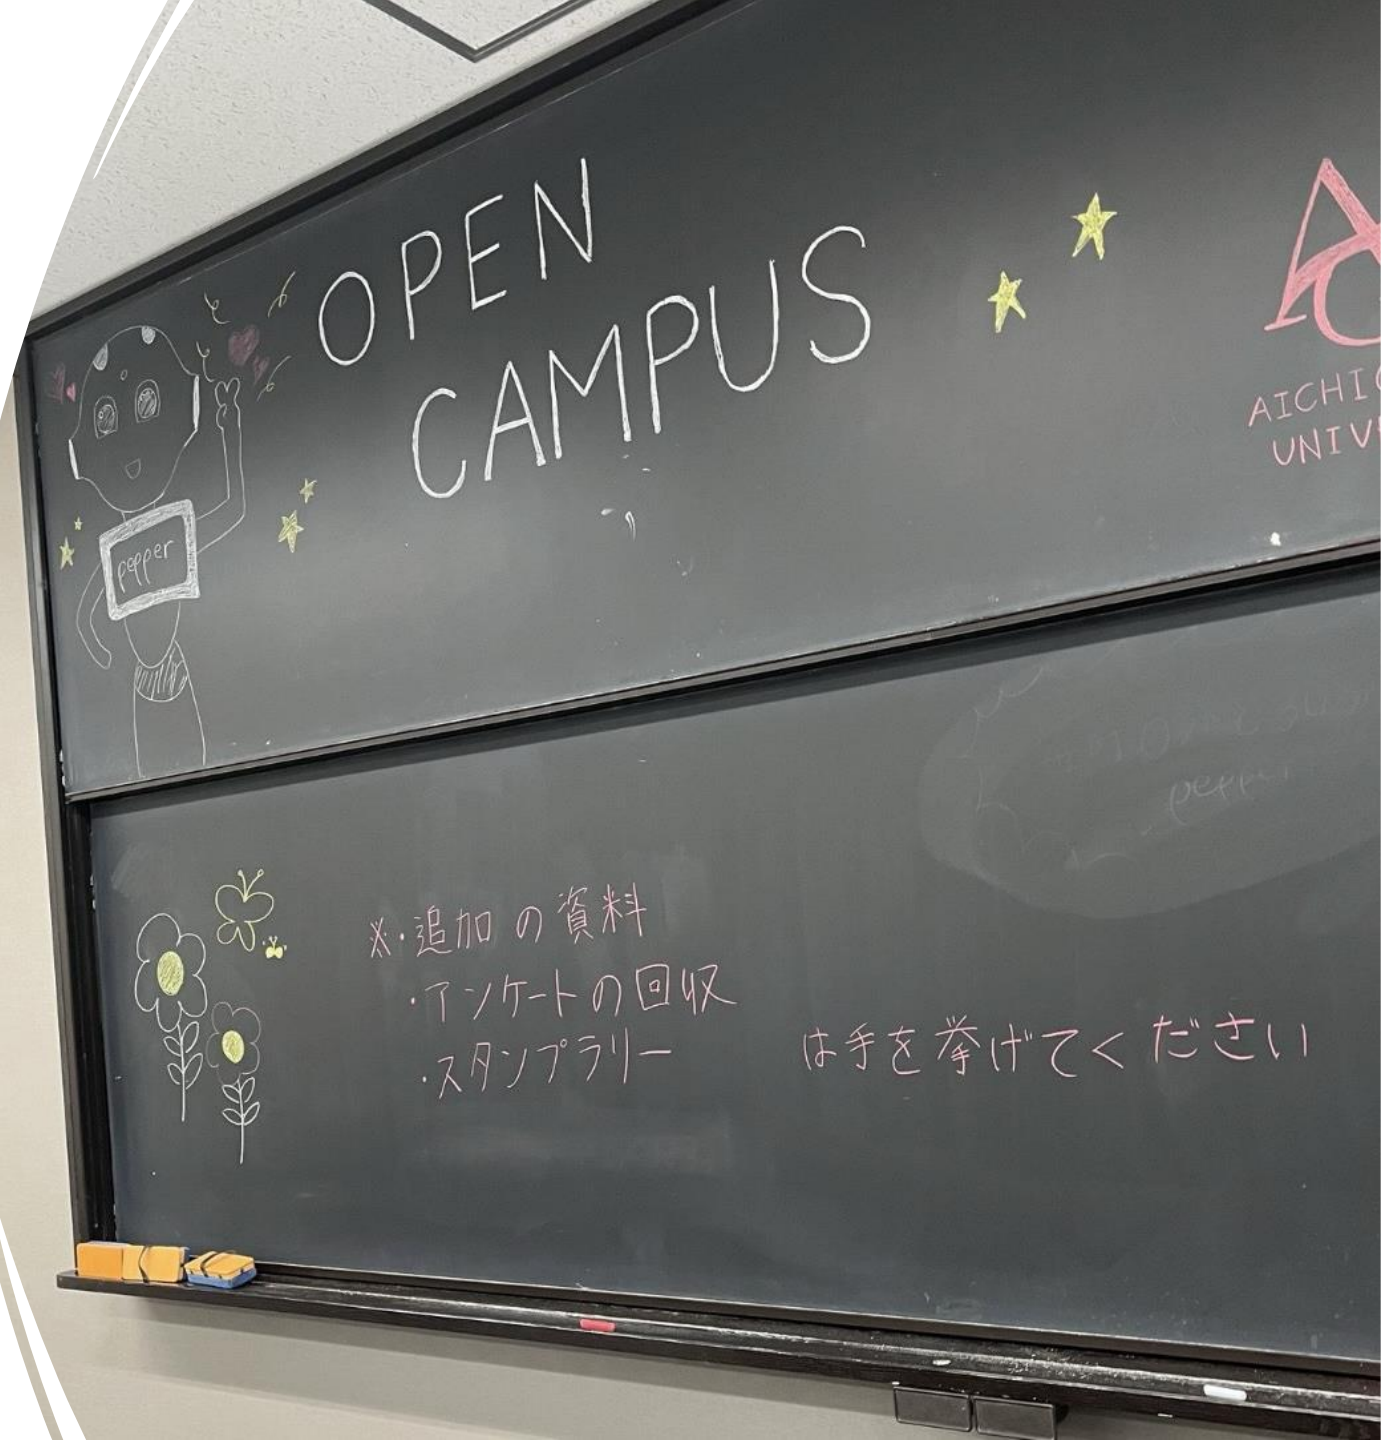 OPEN
CAMPUS
pepper
AICHI
UNIV
pepper
※・追加の資料
・アンケートの回収
・スタンプラリー
は手を挙げてください